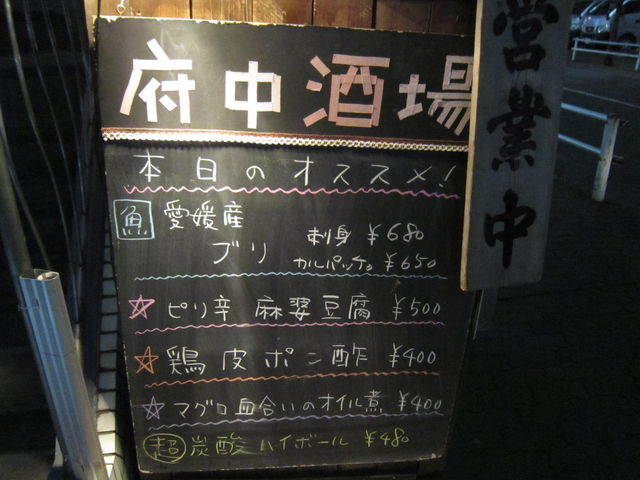 府中酒場
営業中
本日のオススメ!
魚 愛媛産
ブリ 刺身 ¥680
カルパッチョ ¥650
☆ピリ辛 麻婆豆腐 ¥500
☆鶏皮ポン酢 ¥400
☆マグロ血合いのオイル煮 ¥400
超 炭酸ハイボール ¥480